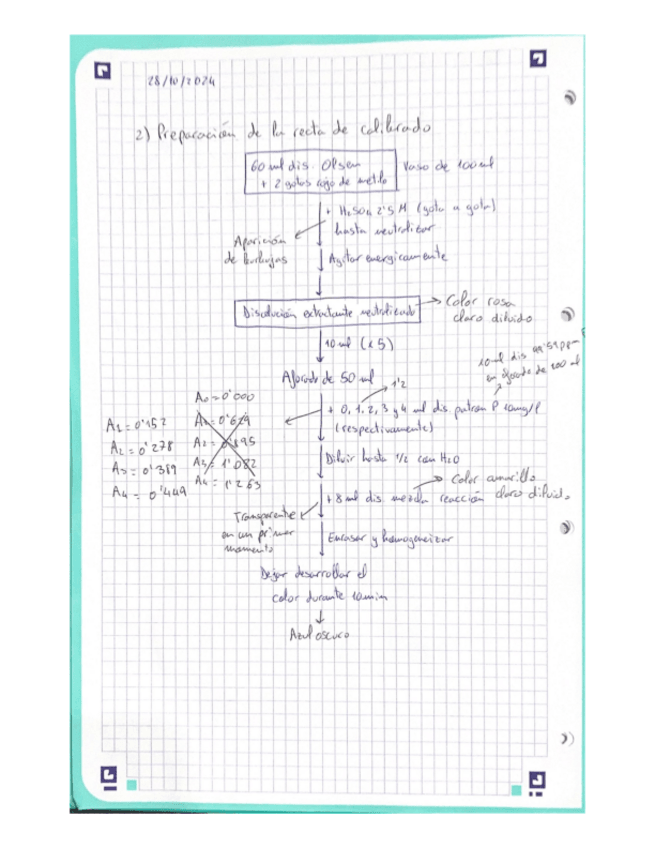 28/10/2024
2) Preparación de la recta de calibrado
60 ml dis. Olsen
+ 2 gotas rojo de metilo
Vaso de 100 ml
+ H₂SO₄ 2'5 M (gota a gota)
hasta neutralizar
Aparición
de burbujas
Agitar energicamente
Disolución extractante neutralizada
Color rosa
claro diluido
10 ml (x5)
10 ml dis
en aforado de 100 ml
Aforado de 50 ml
1'2
A₀ = 0'000
+ 0, 1, 2, 3 y 4 ml dis. patron P 10mg/l
(respectivamente)
A₁ = 0'152
A₂ = 0'278
A₃ = 0'389
A₄ = 0'449
A₃ = 1'082
A₄ = 1'263
Diluir hasta 1/2 con H₂O
Color amarillo
claro diluido
+ 8 ml dis. mezcla reacción
Transparente
en un primer
momento
Enrasar y homogeneizar
Dejar desarrollar el
color durante 10 min
Azul oscuro